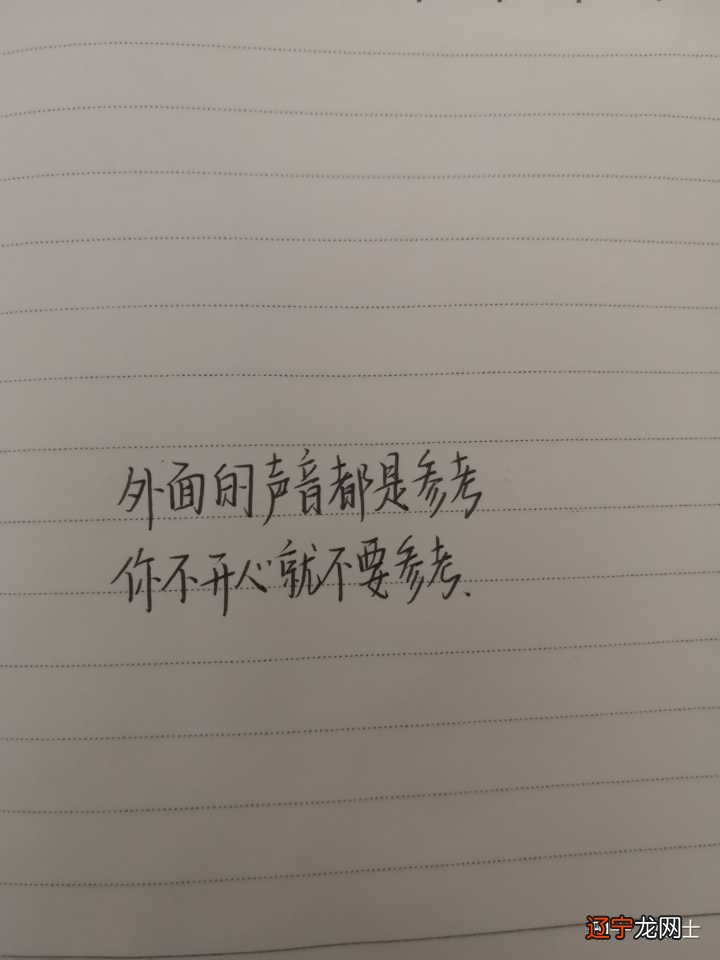 外面的声音都是参考
你不开心就不要参考.
辽宁龙网